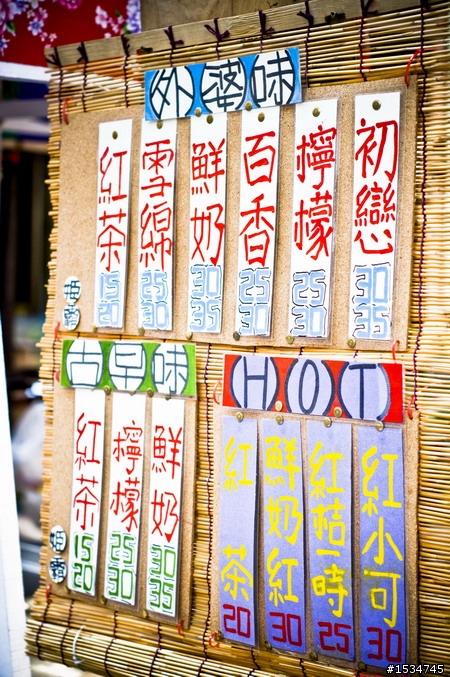 外婆味
紅茶
15
20
雪綿
25
30
鮮奶
30
35
百香
25
30
檸檬
25
30
初戀
30
35
古早味
紅茶
15
20
檸檬
25
30
鮮奶
30
35
HOT
紅茶
20
鮮奶紅
30
紅桔一時
25
紅小可
30
#1534745